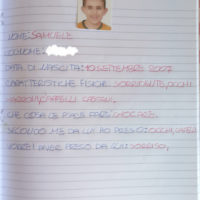 NOME: SAMUELE
COGNOME:
DATA DI NASCITA: 10 SETTEMBRE 2007
CARATTERISTICHE FISICHE: SORRIDENTE, OCCHI
MARRONI, CAPELLI CASTANI.
CHE COSA LE PIACE FARE: GIOCARE.
SECONDO ME DA LUI HO PRESO: OCCHI,
VORREI AVER PRESO DA LUI: SORRISO.